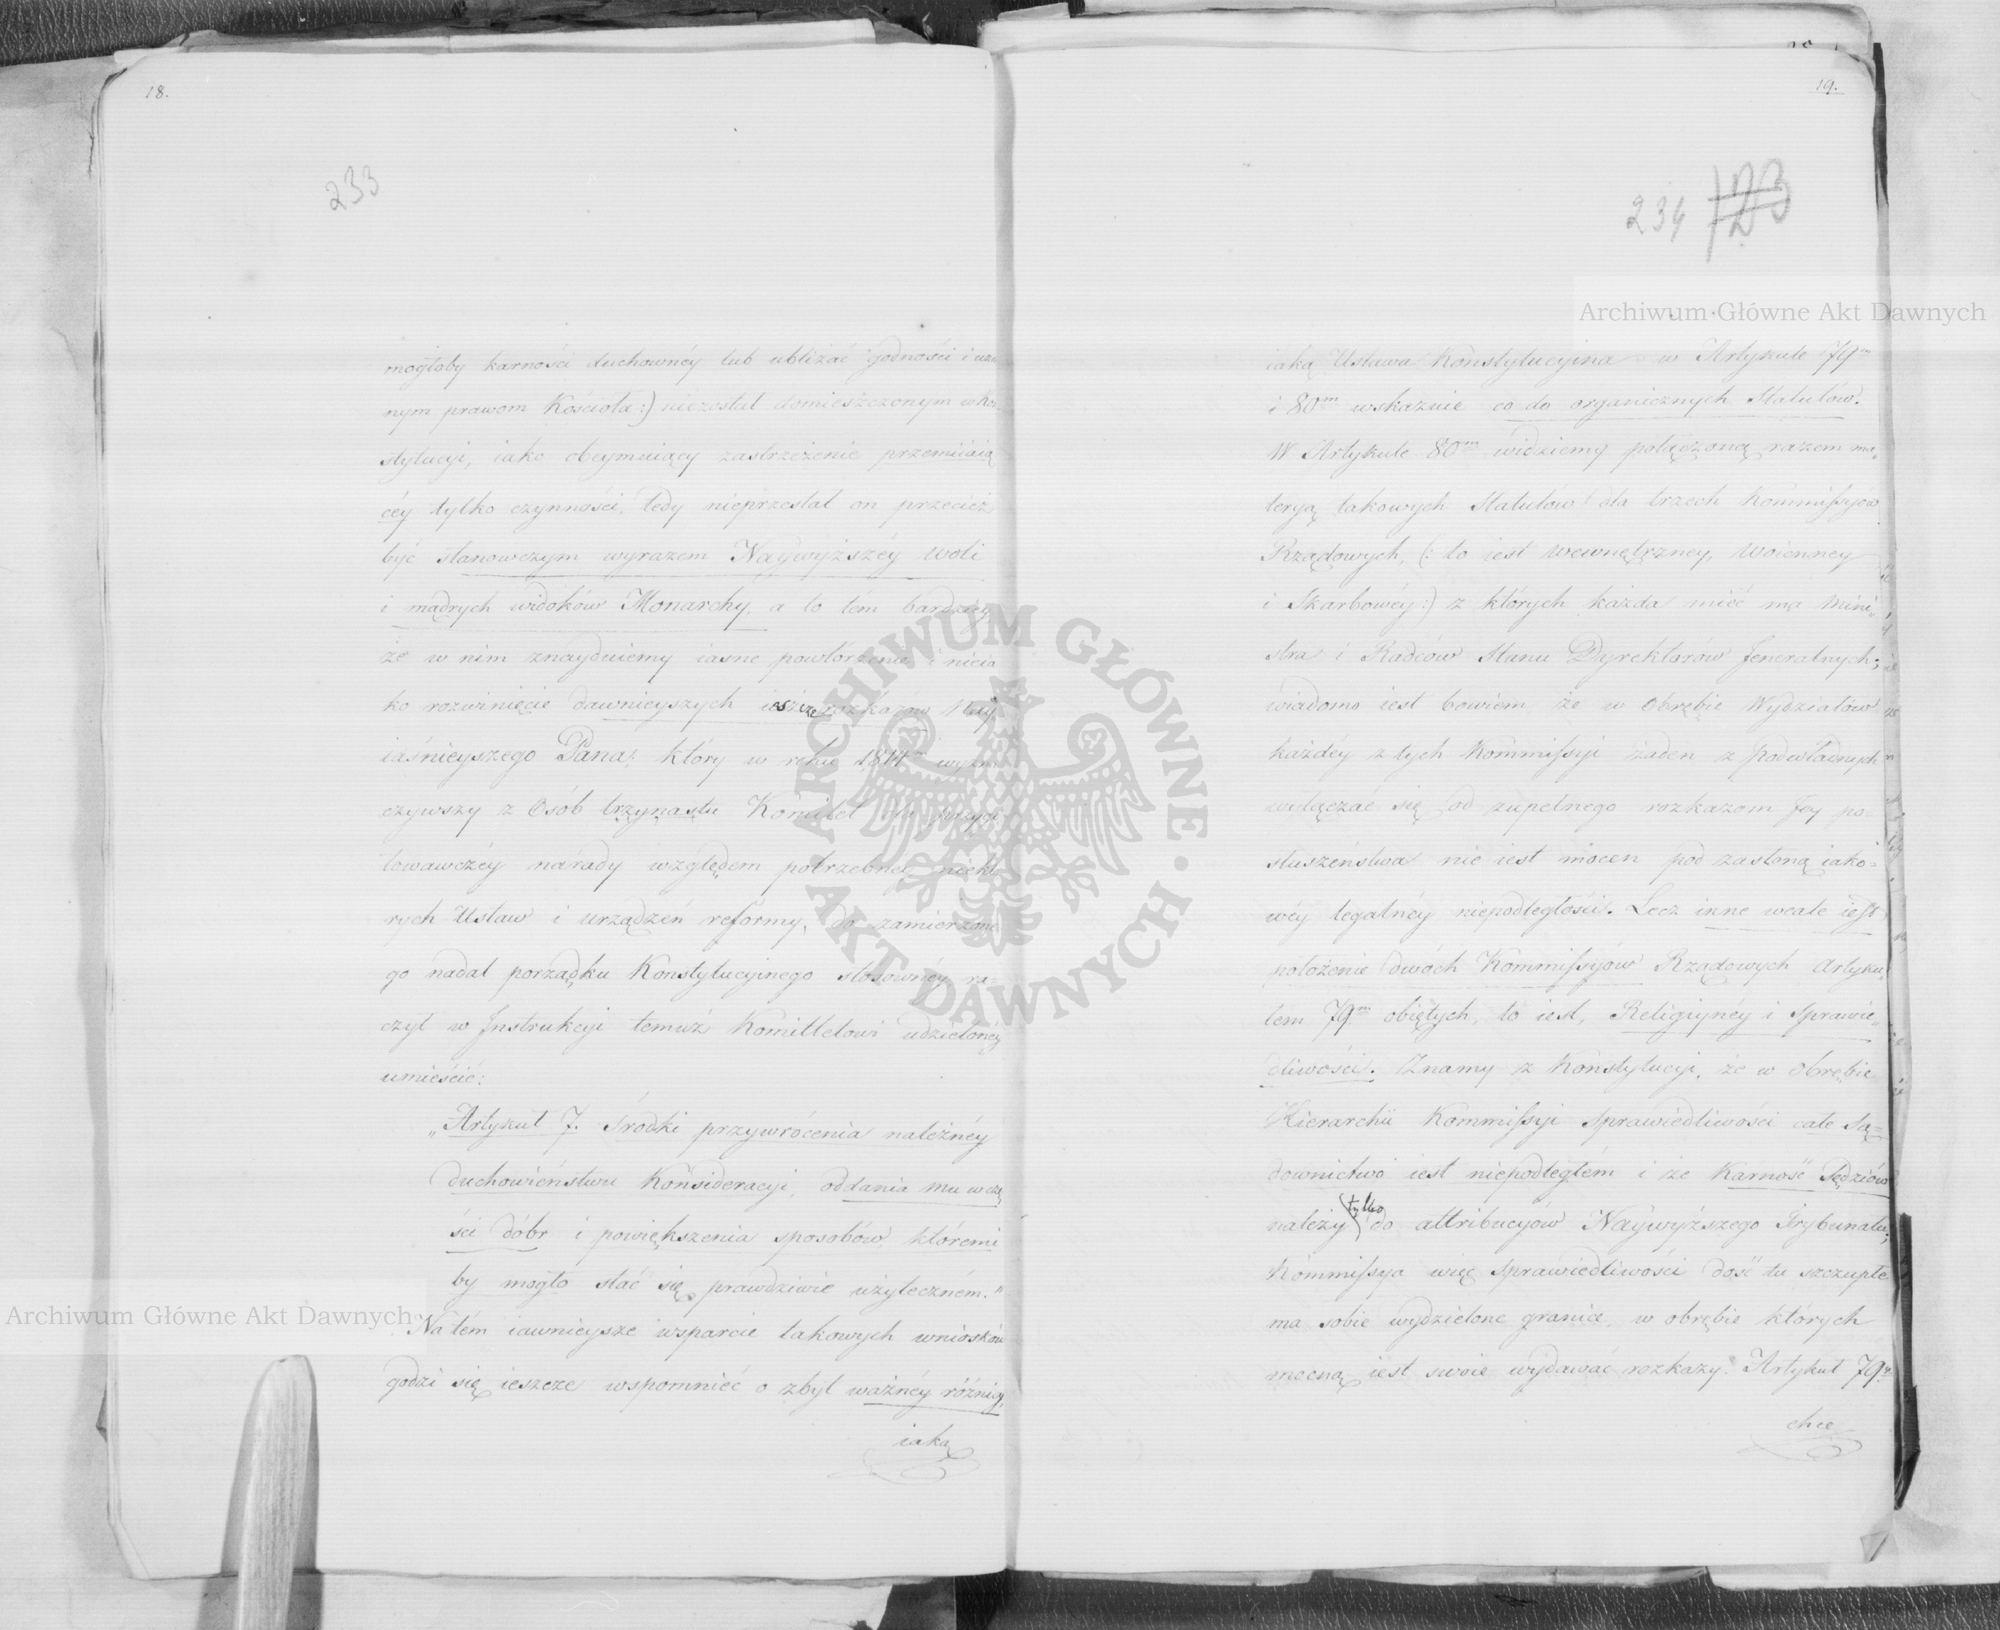 18.
233
mogłoby karności duchownéy lub ubliżać godności i uzna
nym prawom Kościoła:) niezostał domieszczonym w Kon
stytucyi, iako obeymuiący zastrzeżenie przemiiaią
céy tylko czynności, tedy nieprzestał on przecież
być stanowczym wyrazem Naywyższéy woli
i mądrych widoków Monarchy, a to tém bardziéy,
że w nim znayduiemy iasne powtórzenie i nieia
ko rozwinięcie dawnieyszych ieszcze rozkazów Nay
iaśnieyszego Pana, który w roku 1814m wyzna
czywszy z Osób trzynastu Komitet do przygo
towawczéy narady względem potrzebnéy niektó
rych Ustaw i urządzeń reformy, do zamierzone
go nadal porządku Konstytucyinego stosownéy, ra
czył w Instrukcyi temuż Komittetowi udzielonéy
umieścić:
„Artykuł 7. Środki przywrócenia należnéy
duchowieństwu Konsideracyi, oddania mu w czę
ści dóbr i powiększenia sposobów, któremi
by mogło stać się prawdziwie użyteczném."
Na tém iawnieysze wsparcie takowych wniosków
godzi się ieszcze wspomnieć o zbyt ważnéy różnicy,
iaką
19.
234 123
iaką Ustawa Konstytucyina w Artykule 79m
i 80m wskazuie co do organicznych Statutów.
W Artykule 80m widziemy połączoną razem ma„
teryą takowych Statutów dla trzech Kommissyow
Rządowych, (: to iest wewnętrzney, Woienney
i Skarbowéy:) z których każda mieć ma Mini„
stra i Radców Stanu Dyrektorów Jeneralnych;
wiadomo iest bowiem, że w Obrębie Wydziałów
każdéy z tych Kommissyi żaden z podwładnych
wyłączać się od zupełnego rozkazom Jey po„
słuszeństwa nie iest mocen pod zasłoną iako„
wéy legalnéy niepodległości. Lecz inne wcale iest
położenie dwóch Kommissyów Rządowych Artyku„
łem 79m obiętych, to iest, Religiynéy i Sprawie„
dliwości. Znamy z Konstytucyi, że w obrębie
Hierarchii Kommissyi Sprawiedliwości całe Są=
downictwo iest niepodległém i że Karność Sędziów
należy tylko do attribucyów Naywyższego Trybunału;
Kommissya więc Sprawiedliwości dość tu szczupłe
ma sobie wydzielone granice, w obrębie których
mocną iest swoie wydawać rozkazy. Artykuł 79.
chce
Archiwum Główne Akt Dawnych
Archiwum Główne Akt Dawnych
ARCHIWUM GŁÓWNE AKT DAWNYCH